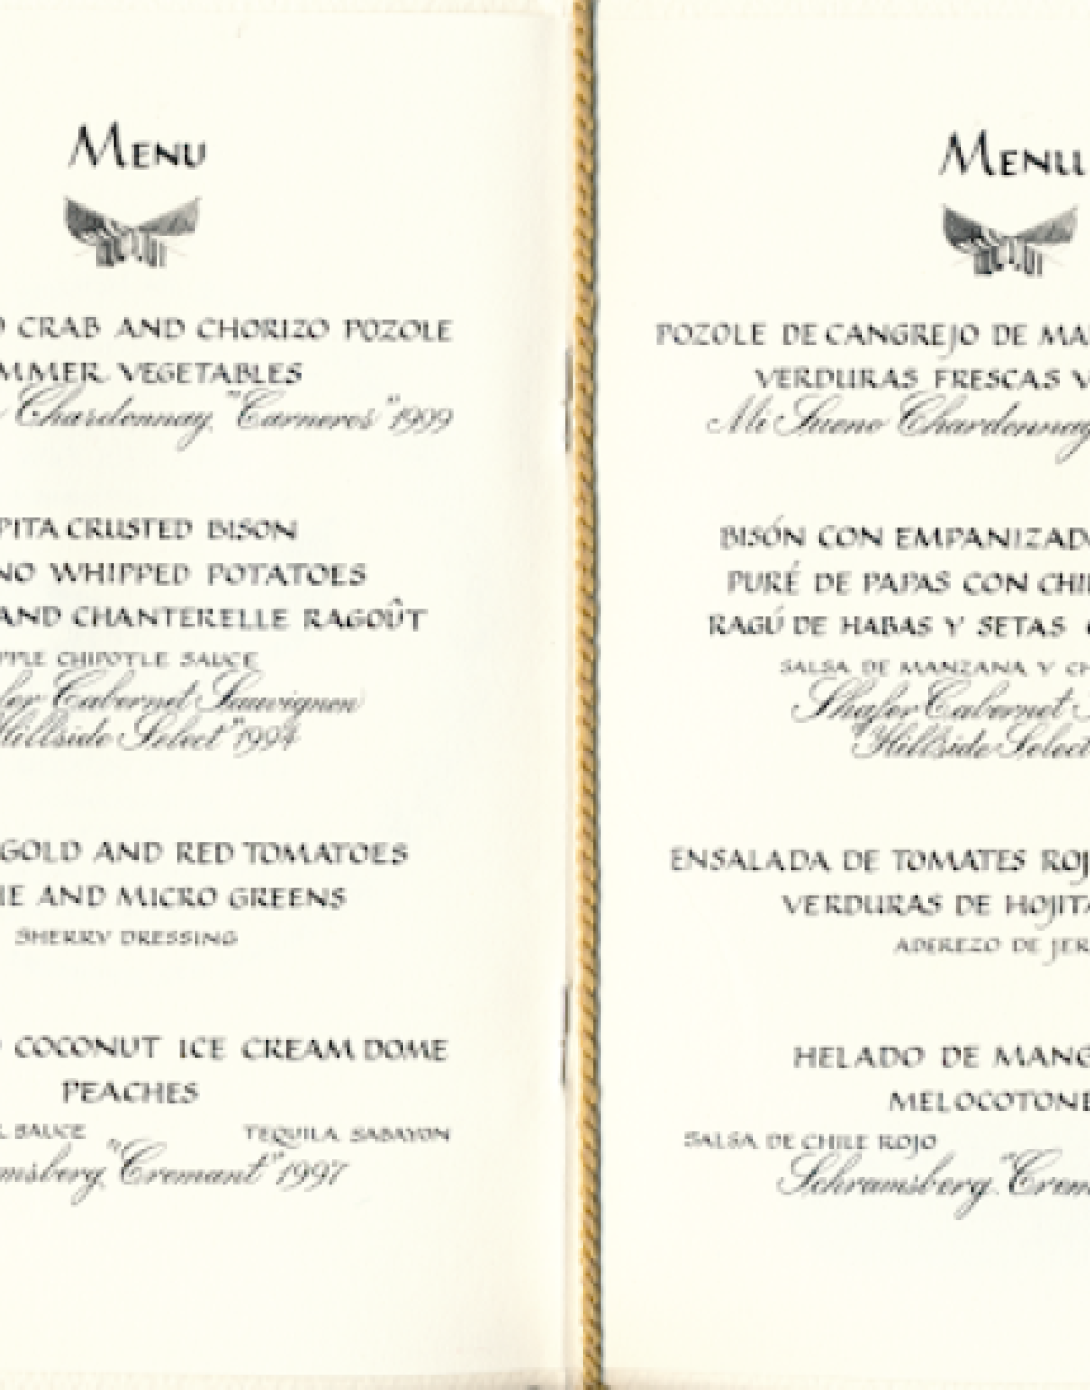 MENU
CRAB AND CHORIZO POZOLE
MMER VEGETABLES
Chardonnay, "Carneros" 1999
PITA CRUSTED BISON
NO WHIPPED POTATOES
AND CHANTERELLE RAGOÛT
PPLE CHIPOTLE SAUCE
fer Cabernet Sauvignon
Hillside Select" 1994
GOLD AND RED TOMATOES
IE AND MICRO GREENS
SHERRY DRESSING
COCONUT ICE CREAM DOME
PEACHES
SAUCE TEQUILA SABAYON
msberg, "Cremant" 1997
MENU
POZOLE DE CANGREJO DE MA
VERDURAS FRESCAS V
Mi Sueno Chardonnay
BISÓN CON EMPANIZAD
PURÉ DE PAPAS CON CHI
RAGÚ DE HABAS Y SETAS
SALSA DE MANZANA Y CH
Shafer Cabernet S
"Hillside Select
ENSALADA DE TOMATES ROJ
VERDURAS DE HOJITA
ADEREZO DE JER
HELADO DE MANG
MELOCOTONE
SALSA DE CHILE ROJO
Schramsberg, "Crem